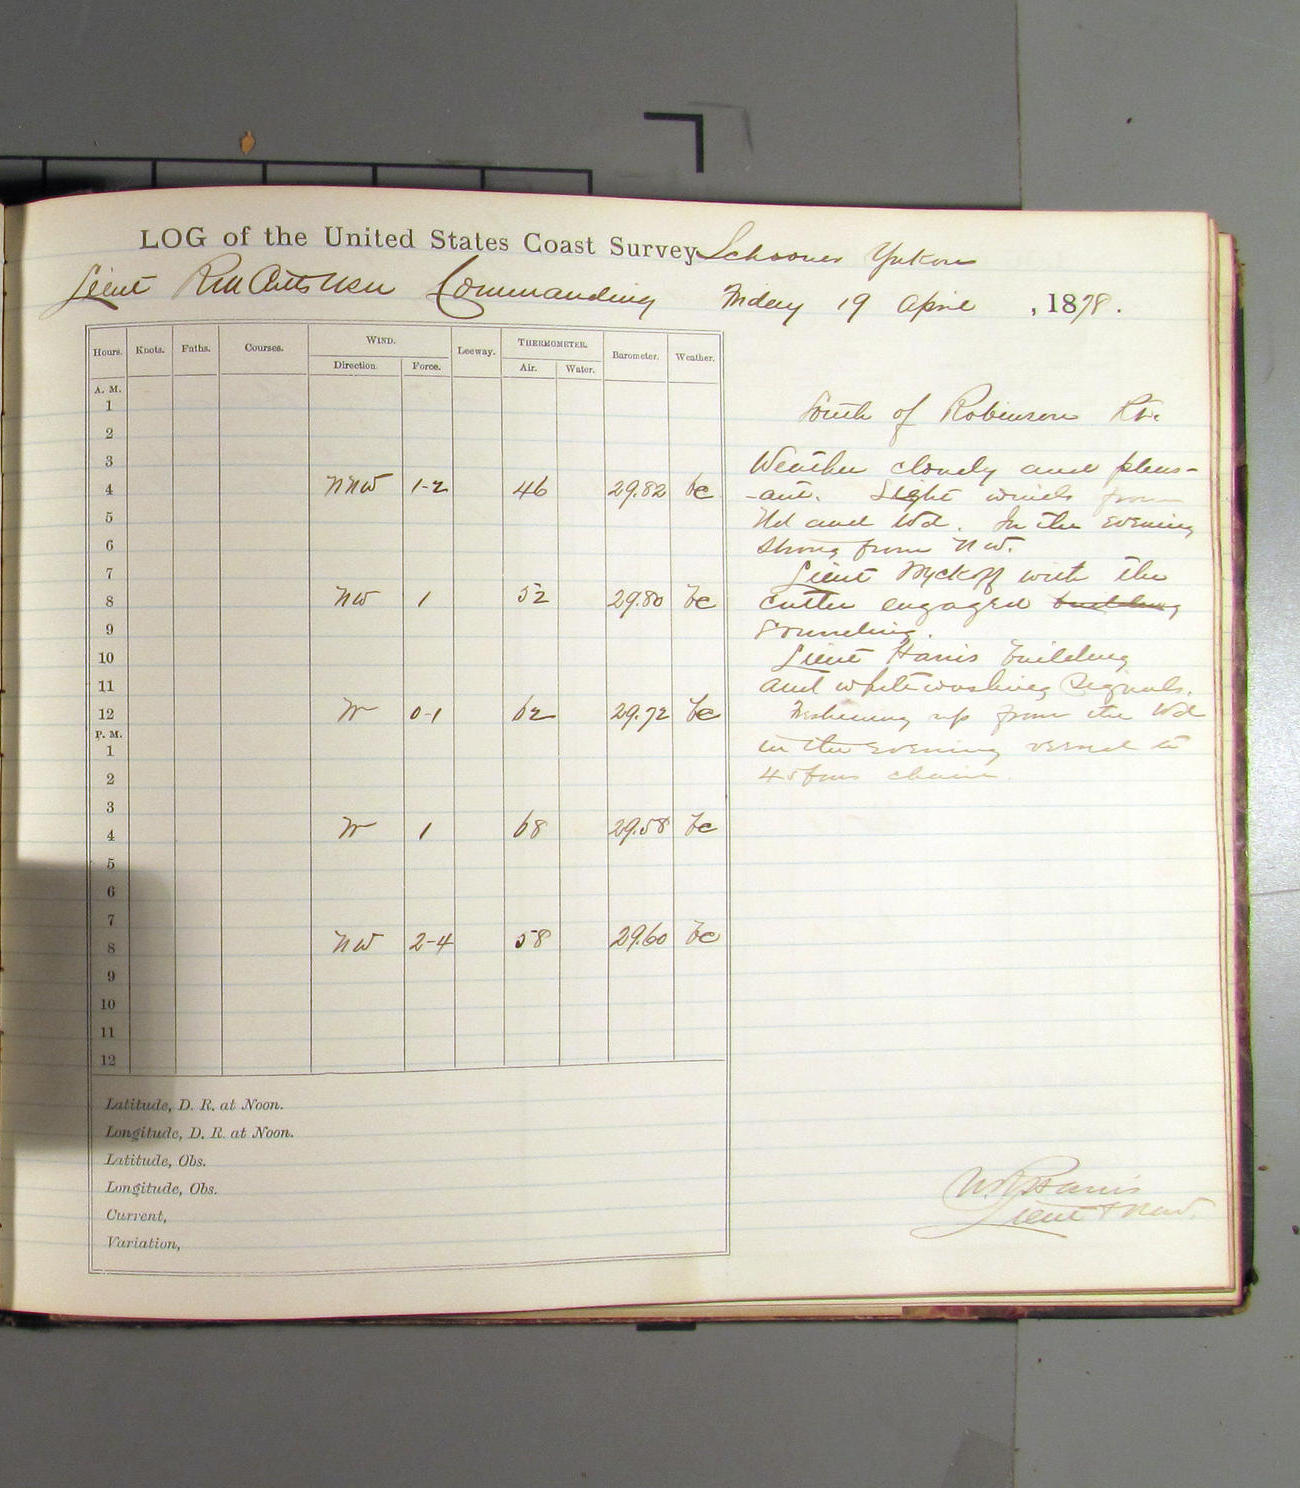 LOG of the United States Coast Survey Schooner Yukon
Lieut Commanding Friday 19 April , 1878.
Hours. Knots. Faths. Courses. WIND. Leeway. THERMOMETER. Barometer. Weather.
Direction. Force. Air. Water.
A. M.
1
2
3
4 NNW 1-2 46 29.82 bc
5
6
7
8 NW 1 52 29.80 bc
9
10
11
12 W 0-1 62 29.72 bc
P. M.
1
2
3
4 W 1 68 29.58 bc
5
6
7
8 NW 2-4 58 29.60 bc
9
10
11
12
Latitude, D. R. at Noon.
Longitude, D. R. at Noon.
Latitude, Obs.
Longitude, Obs.
Current,
Variation,
South of Robinson Pt.
Weather cloudy and pleas-
-ant. Light winds from
Nd and Wd. In the evening
strong from NW.
Lieut Wyckoff with the
cutter engaged building
sounding.
Lieut Harris building
and whitewashing Signals.
Freshening up from the Wd
in the evening veered to
45 fms chain.
W.P. Harris
Lieut